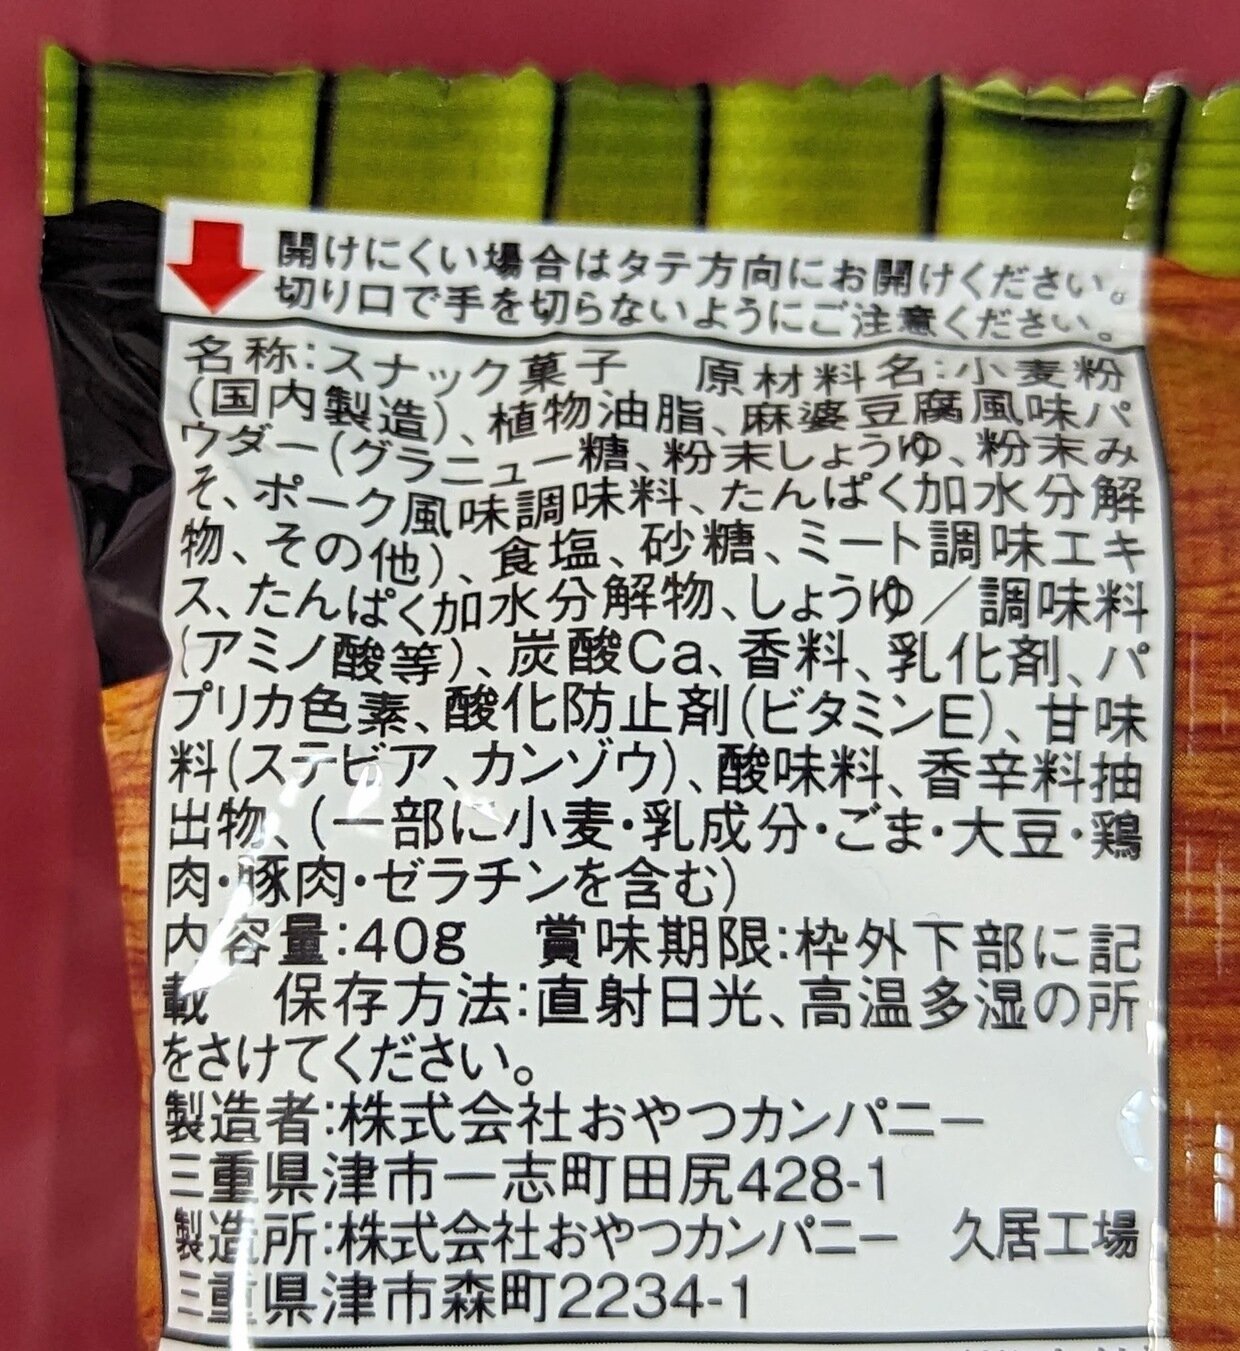 開けにくい場合はタテ方向にお開けください。
切り口で手を切らないようにご注意ください。
名称:スナック菓子　原材料名:小麦粉
(国内製造)、植物油脂、麻婆豆腐風味パ
ウダー(グラニュー糖、粉末しょうゆ、粉末み
そ、ポーク風味調味料、たんぱく加水分解
物、その他)、食塩、砂糖、ミート調味エキ
ス、たんぱく加水分解物、しょうゆ／調味料
(アミノ酸等)、炭酸Ca、香料、乳化剤、パ
プリカ色素、酸化防止剤(ビタミンE)、甘味
料(ステビア、カンゾウ)、酸味料、香辛料抽
出物、(一部に小麦・乳成分・ごま・大豆・鶏
肉・豚肉・ゼラチンを含む)
内容量:40g　賞味期限:枠外下部に記
載　保存方法:直射日光、高温多湿の所
をさけてください。
製造者:株式会社おやつカンパニー
三重県津市一志町田尻428-1
製造所:株式会社おやつカンパニー　久居工場
三重県津市森町2234-1